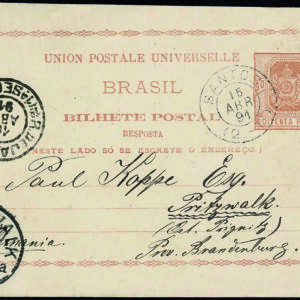 UNION POSTALE UNIVERSELLE
BRASIL
BILHETE POSTAL
RESPOSTA
(NESTE LADO SÓ SE ESCREVE O ENDEREÇO.)
SANTOS
15
ABR
91
(2
OITENTA
Paul Koppe Esq.
Pritzwalk
(Kr. Prignitz)
Prov. Brandenburg.